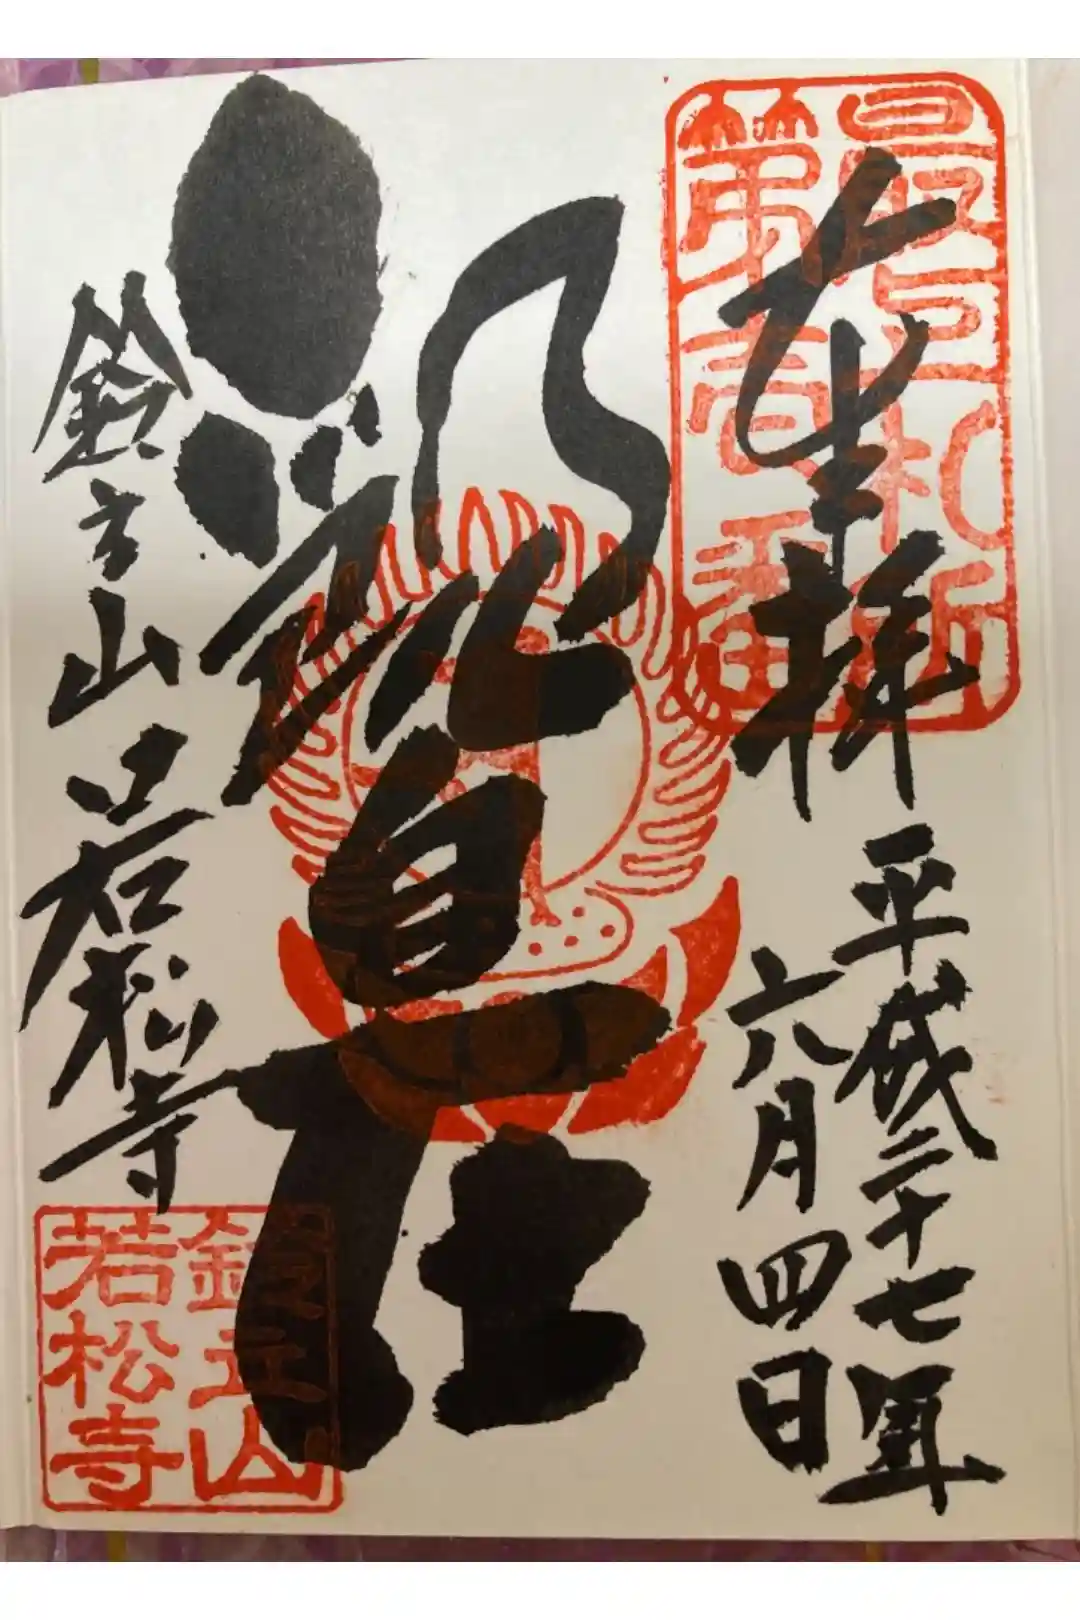 最上札所
第壹番
奉拝
平成二十七年
六月四日
観自在
鈴立山 若松寺
鈴立山
若松寺